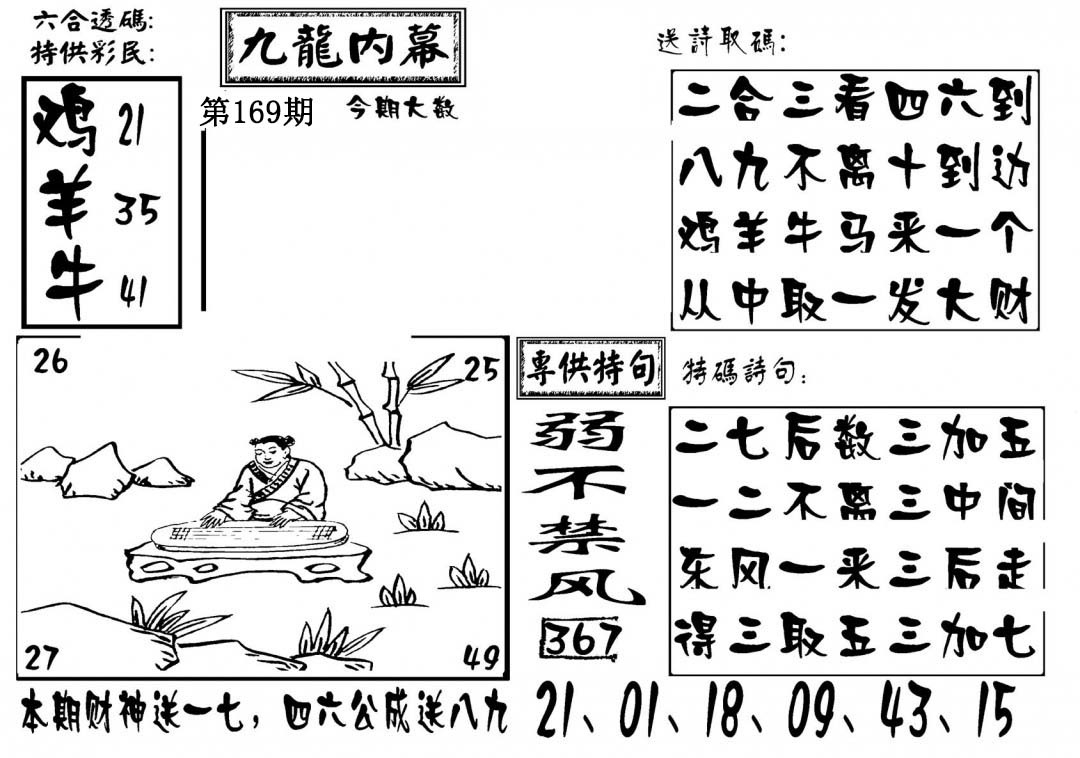 六合透碼:
特供彩民:
九龍内幕
第169期
今期大数
鸡 21
羊 35
牛 41
送詩取碼:
二合三看四六到
八九不离十到边
鸡羊牛马来一个
从中取一发大财
26
25
27
49
專供特句
弱不禁风
367
特碼詩句:
二七后数三加五
一二不离三中间
东风一来三后走
得三取五三加七
本期财神送一七，四六公成送八九
21、01、18、09、43、15